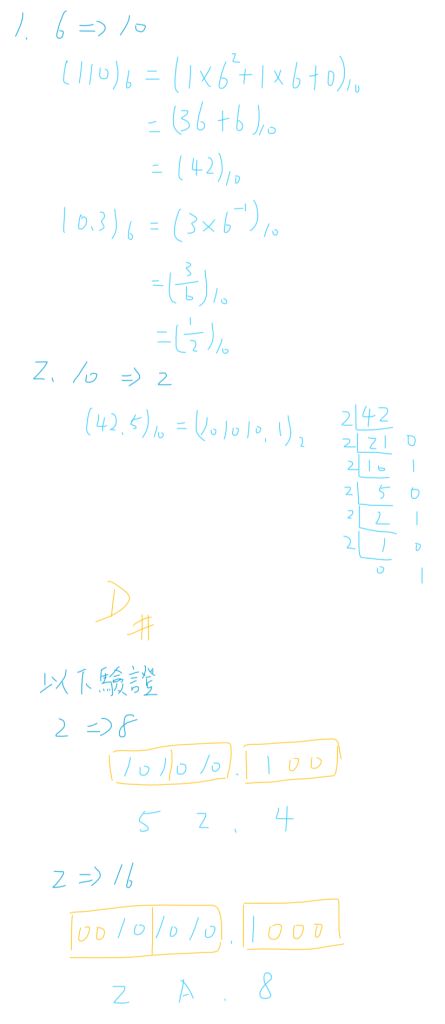 1. 6 => 10
(110)₆ = (1×6²+1×6+0)₁₀
= (36+6)₁₀
= (42)₁₀
(0.3)₆ = (3×6⁻¹)₁₀
= (3/6)₁₀
= (1/2)₁₀
2. 10 => 2
(42.5)₁₀ = (101010.1)₂
2 42
2 21 0
2 10 1
2 5 0
2 2 1
2 1 0
0 1
D #
以下驗證
2 => 8
101 010 . 100
5 2 . 4
2 => 16
0010 1010 . 1000
2 A . 8